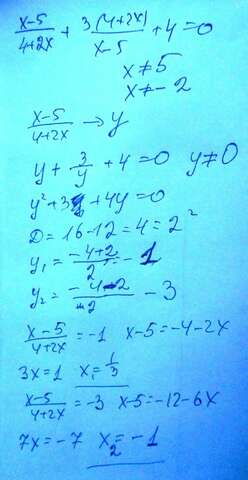 (x-5)/(4+2x) + 3(4+2x)/(x-5) + 4 = 0
x ≠ 5
x ≠ -2
(x-5)/(4+2x) → y
y + 3/y + 4 = 0 y ≠ 0
y² + 3 + 4y = 0
D = 16 - 12 = 4 = 2²
y₁ = (-4+2)/2 = -1
y₂ = (-4-2)/2 - 3
(x-5)/(4+2x) = -1 x-5 = -4-2x
3x = 1 x₁ = 1/3
(x-5)/(4+2x) = -3 x-5 = -12-6x
7x = -7 x₂ = -1